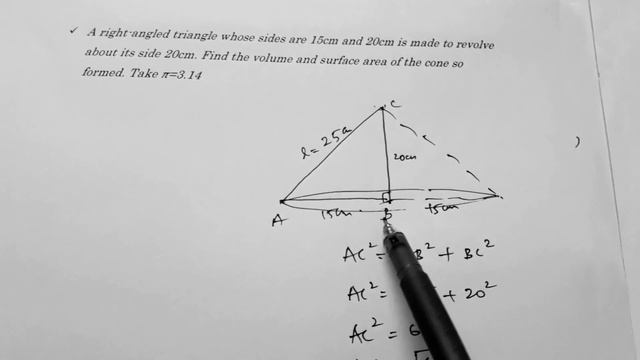 ✓ A right-angled triangle whose sides are 15cm and 20cm is made to revolve
about its side 20cm. Find the volume and surface area of the cone so
formed. Take π=3.14
C
l = 25
20cm
A 15cm B 15cm
AC² = B² + BC²
AC² = + 20²
AC² = 6